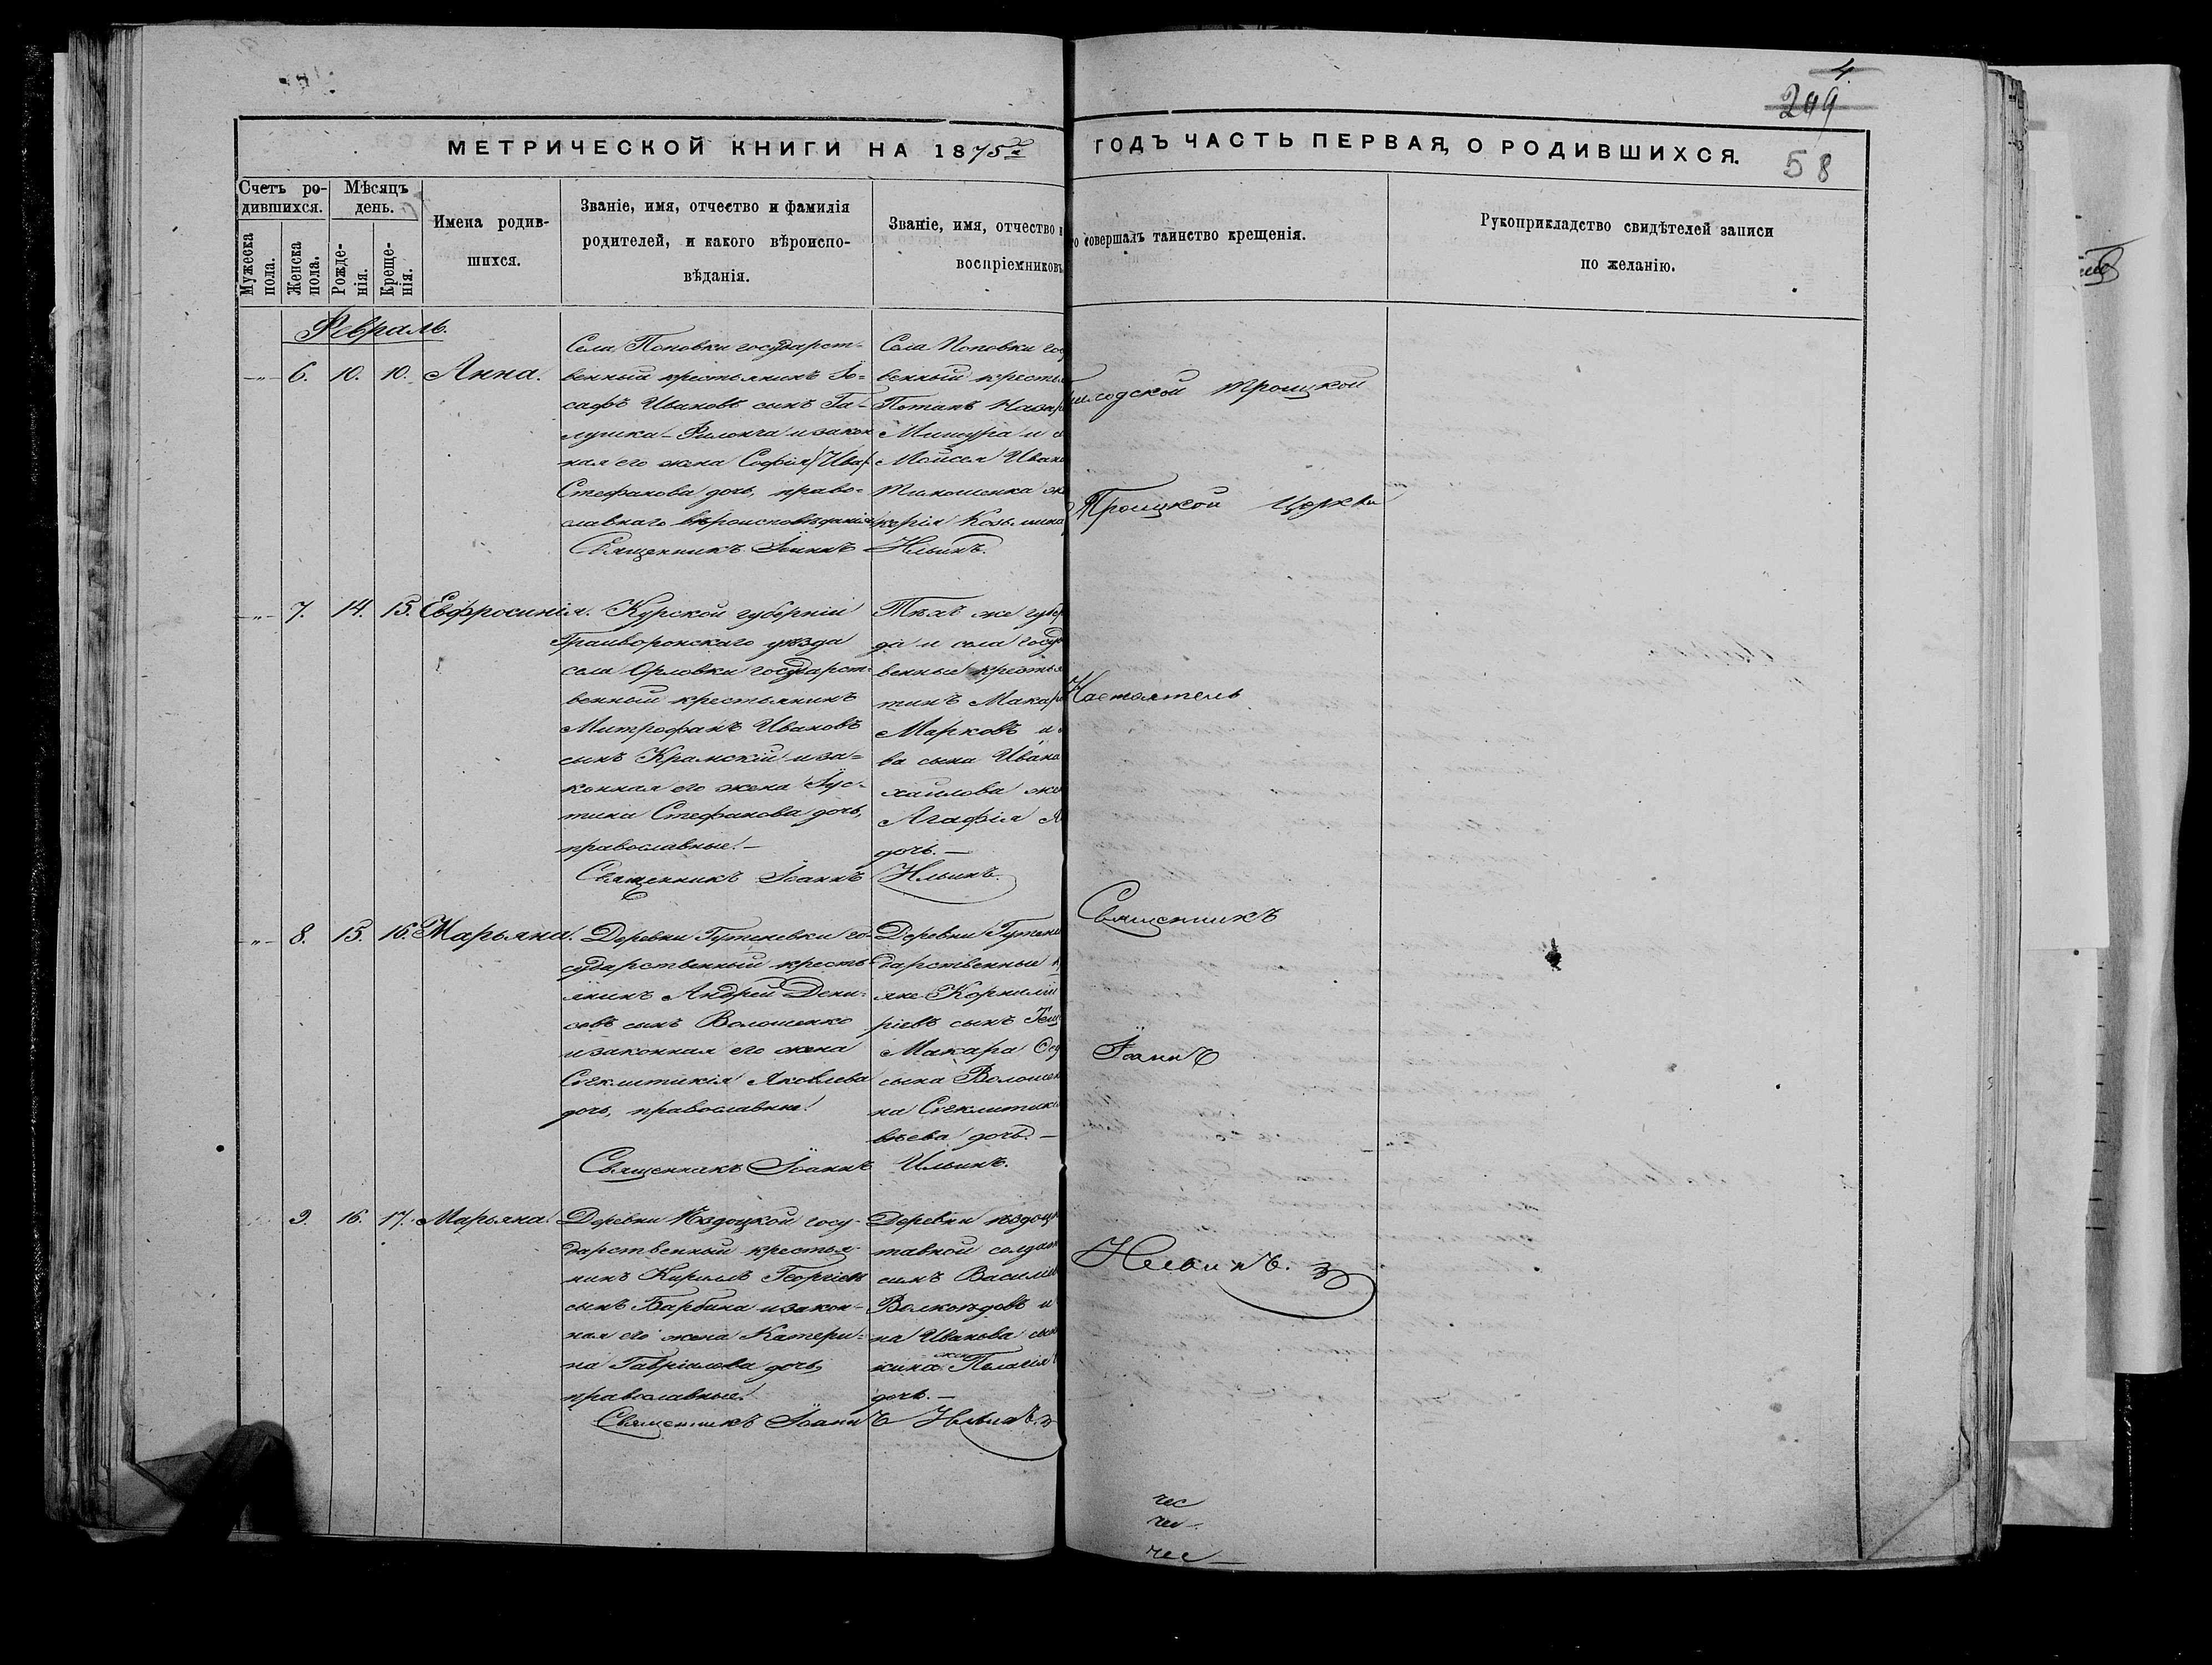 4.
299
58
МЕТРИЧЕСКОЙ КНИГИ НА 1875й
ГОДЪ ЧАСТЬ ПЕРВАЯ, О РОДИВШИХСЯ.
Счетъ ро-
дившихся.
Мужеска
пола.
Женска
пола.
Мѣсяцъ
день.
Рожде-
нія.
Креще-
нія.
Имена родив-
шихся.
Званіе, имя, отчество и фамилія
родителей, и какого вѣроиспо-
вѣданія.
Званіе, имя, отчество и
воспріемниковъ
то совершалъ таинство крещенія.
Рукоприкладство свидѣтелей записи
по желанію.
Февраль.
-"- 6. 10. 10. Анна.
Села Поповки государст-
венный крестьянинъ Іо-
сафъ Ивановъ сынъ Га-
лушка-Филонча и закон
ная его жена Софія
Стефанова дочь, право-
славнаго вѣроисповѣданія
Священникъ Іоаннъ Ильинъ.
Села Поповки гос
венный крестья
Потапъ Назар
и
Моисея Ивано
Тимошенка же
керія Козьмина
-"- 7. 14. 15. Евфросинія.
Курской губерніи
Грайворонскаго уѣзда
села Орловки государст-
венный крестьянинъ
Митрофанъ Ивановъ
сынъ Крамскій и за-
конная его жена Іус-
тина Стефанова дочь,
православные.-
Священникъ Іоаннъ Ильинъ.
Тѣхъ же губер
да и села госуд
венные крестья
нинъ Макар
Марковъ и
ва сына Ивана
хаилова же
Агафія А
дочь.-
-"- 8. 15. 16. Марьяна.
Деревни Гутеневки го-
сударственный кресть-
янинъ Андрей Дени-
совъ сынъ Волошенко
и законная его жена
Сѵнклитикія Яковлева
дочь, православные.
Священникъ Іоаннъ Ильинъ.
Деревни Гутене
дарственные к
яне Корнилій
ріевъ сынъ
Макара Ѳед
сына Волошен
на Сѵнклитики
вѣева дочь.-
9. 16. 17. Марьяна.
Деревни Нѣздоцкой госу-
дарственный крестья-
нинъ Кириллъ Георгіевъ
сынъ Барбина и закон-
ная его жена Катери-
на Гавріилова дочь,
православные.
Священникъ Іоаннъ Ильинъ.
Деревни нѣздоцк
тавной солдат
симъ Василіев
Волкоѣдовъ и
на Иванова сын
жина жен Пелагія
дочь.-
Троицкой
Троицкой Церкви
Настоятель
Священникъ
Іоаннъ
Ильинъ.